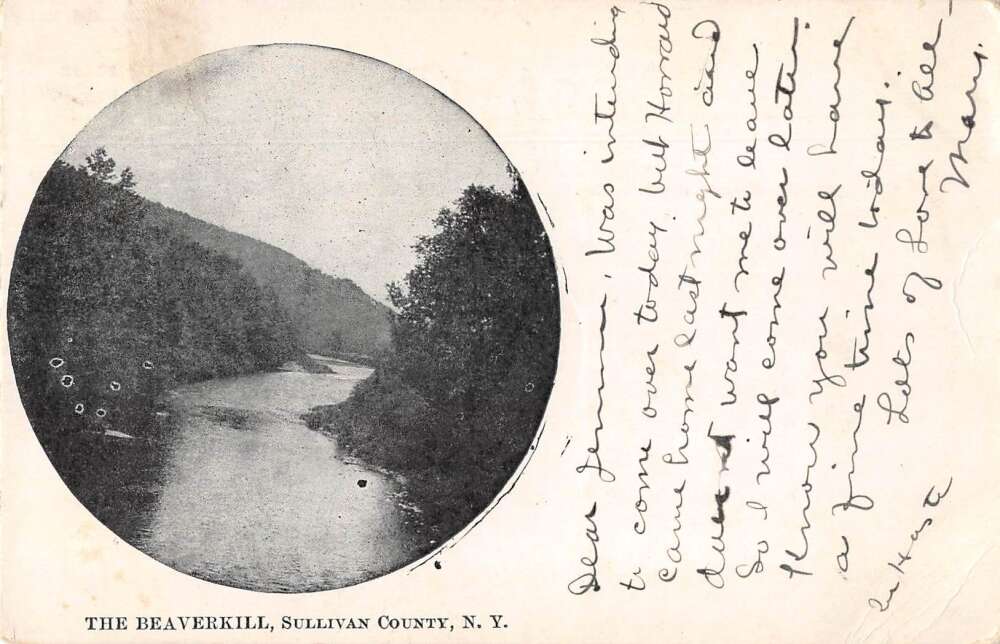 THE BEAVERKILL, SULLIVAN COUNTY, N. Y.
Dear Jemma, Was intending
to come over today but Horraid
came home last night and
dident want me to leave
So I will come over later.
Know you will have
a fine time today.
Lots of Love to all -
Mary.
In Haste